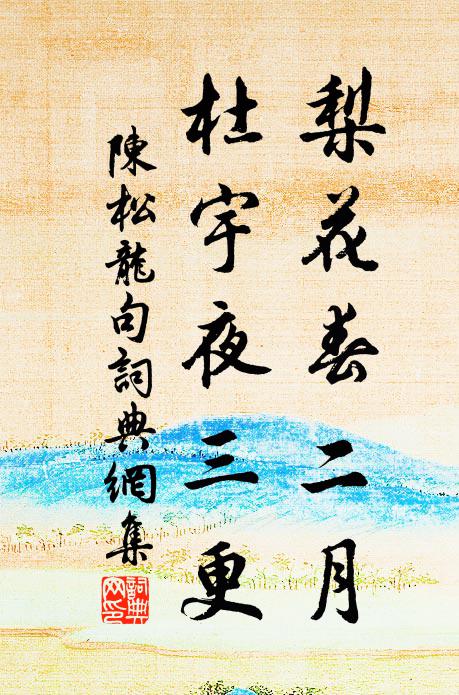 梨花春二月
杜宇夜三更
陳松龍句詞典網集
詞典
网印